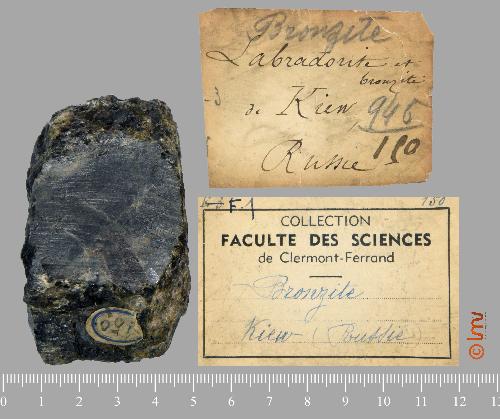 Bronzite
Labradorite et
bronzite
3
de Kiew 945
Russie 150
F.1 150
COLLECTION
FACULTE DES SCIENCES
de Clermont-Ferrand
Bronzite
Kiew (Russie
150
© lmv
0 1 2 3 4 5 6 7 8 9 10 11 12 13